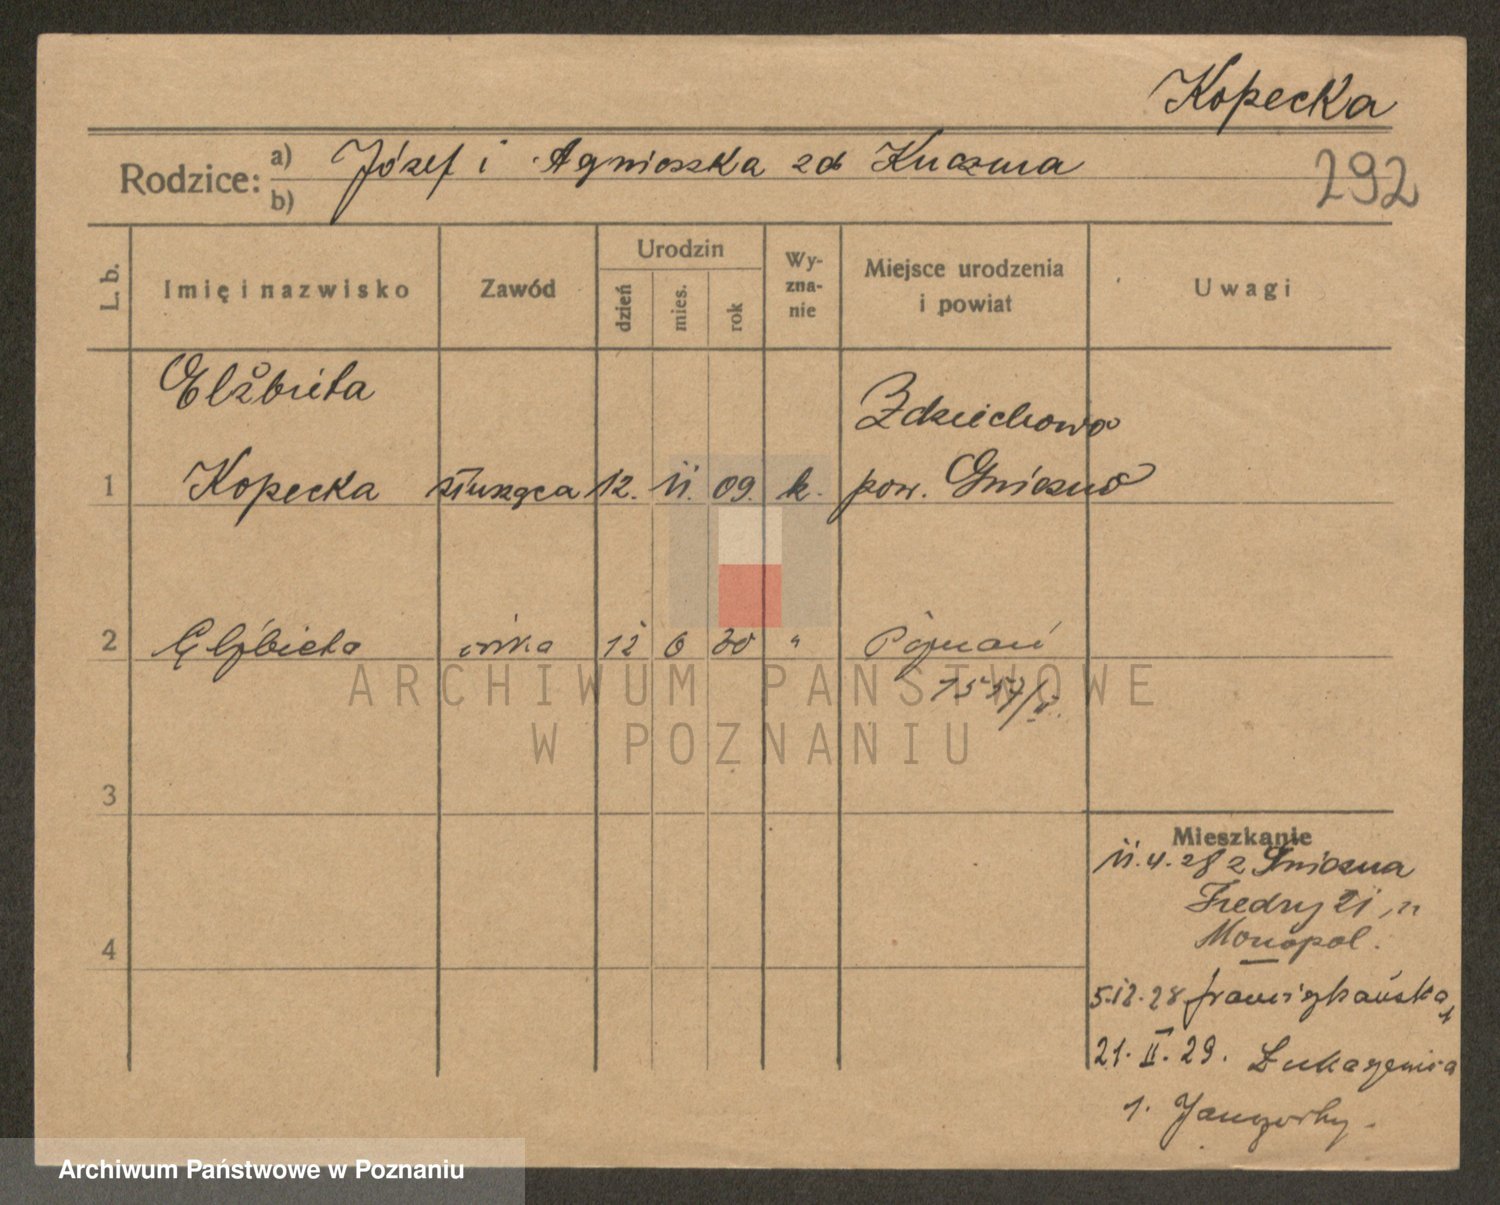 Kopecka
Rodzice: a) Józef i Agnieszka zd Kuczma
b)
292
L. b.
Imię i nazwisko
Zawód
Urodzin
dzień
mies.
rok
Wy-
zna-
nie
Miejsce urodzenia
i powiat
Uwagi
Elżbieta
Zdziechowo
1 Kopecka służąca 12. 11. 09. k. pow. Gniezno
2 Elżbieta córka 12 6 30 " Poznań
1557/
ARCHIWUM PAŃSTWOWE
W POZNANIU
3
Mieszkanie
11.4.28 z Gniezna
Fredry
Monopol.
4
5.12.28 Franciszkańska
21. II. 29. Łukaszewicza
1.
Archiwum Państwowe w Poznaniu